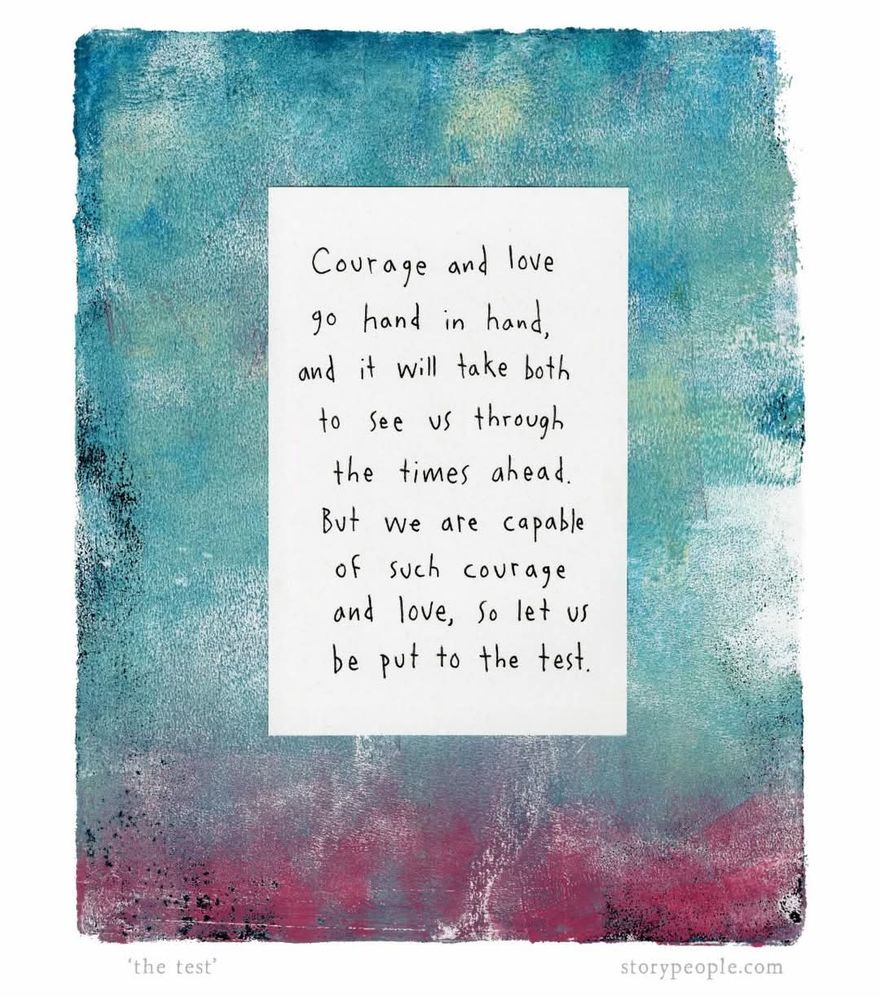 Courage and love
go hand in hand,
and it will take both
to see us through
the times ahead.
But we are capable
of such courage
and love, so let us
be put to the test.
'the test'
storypeople.com